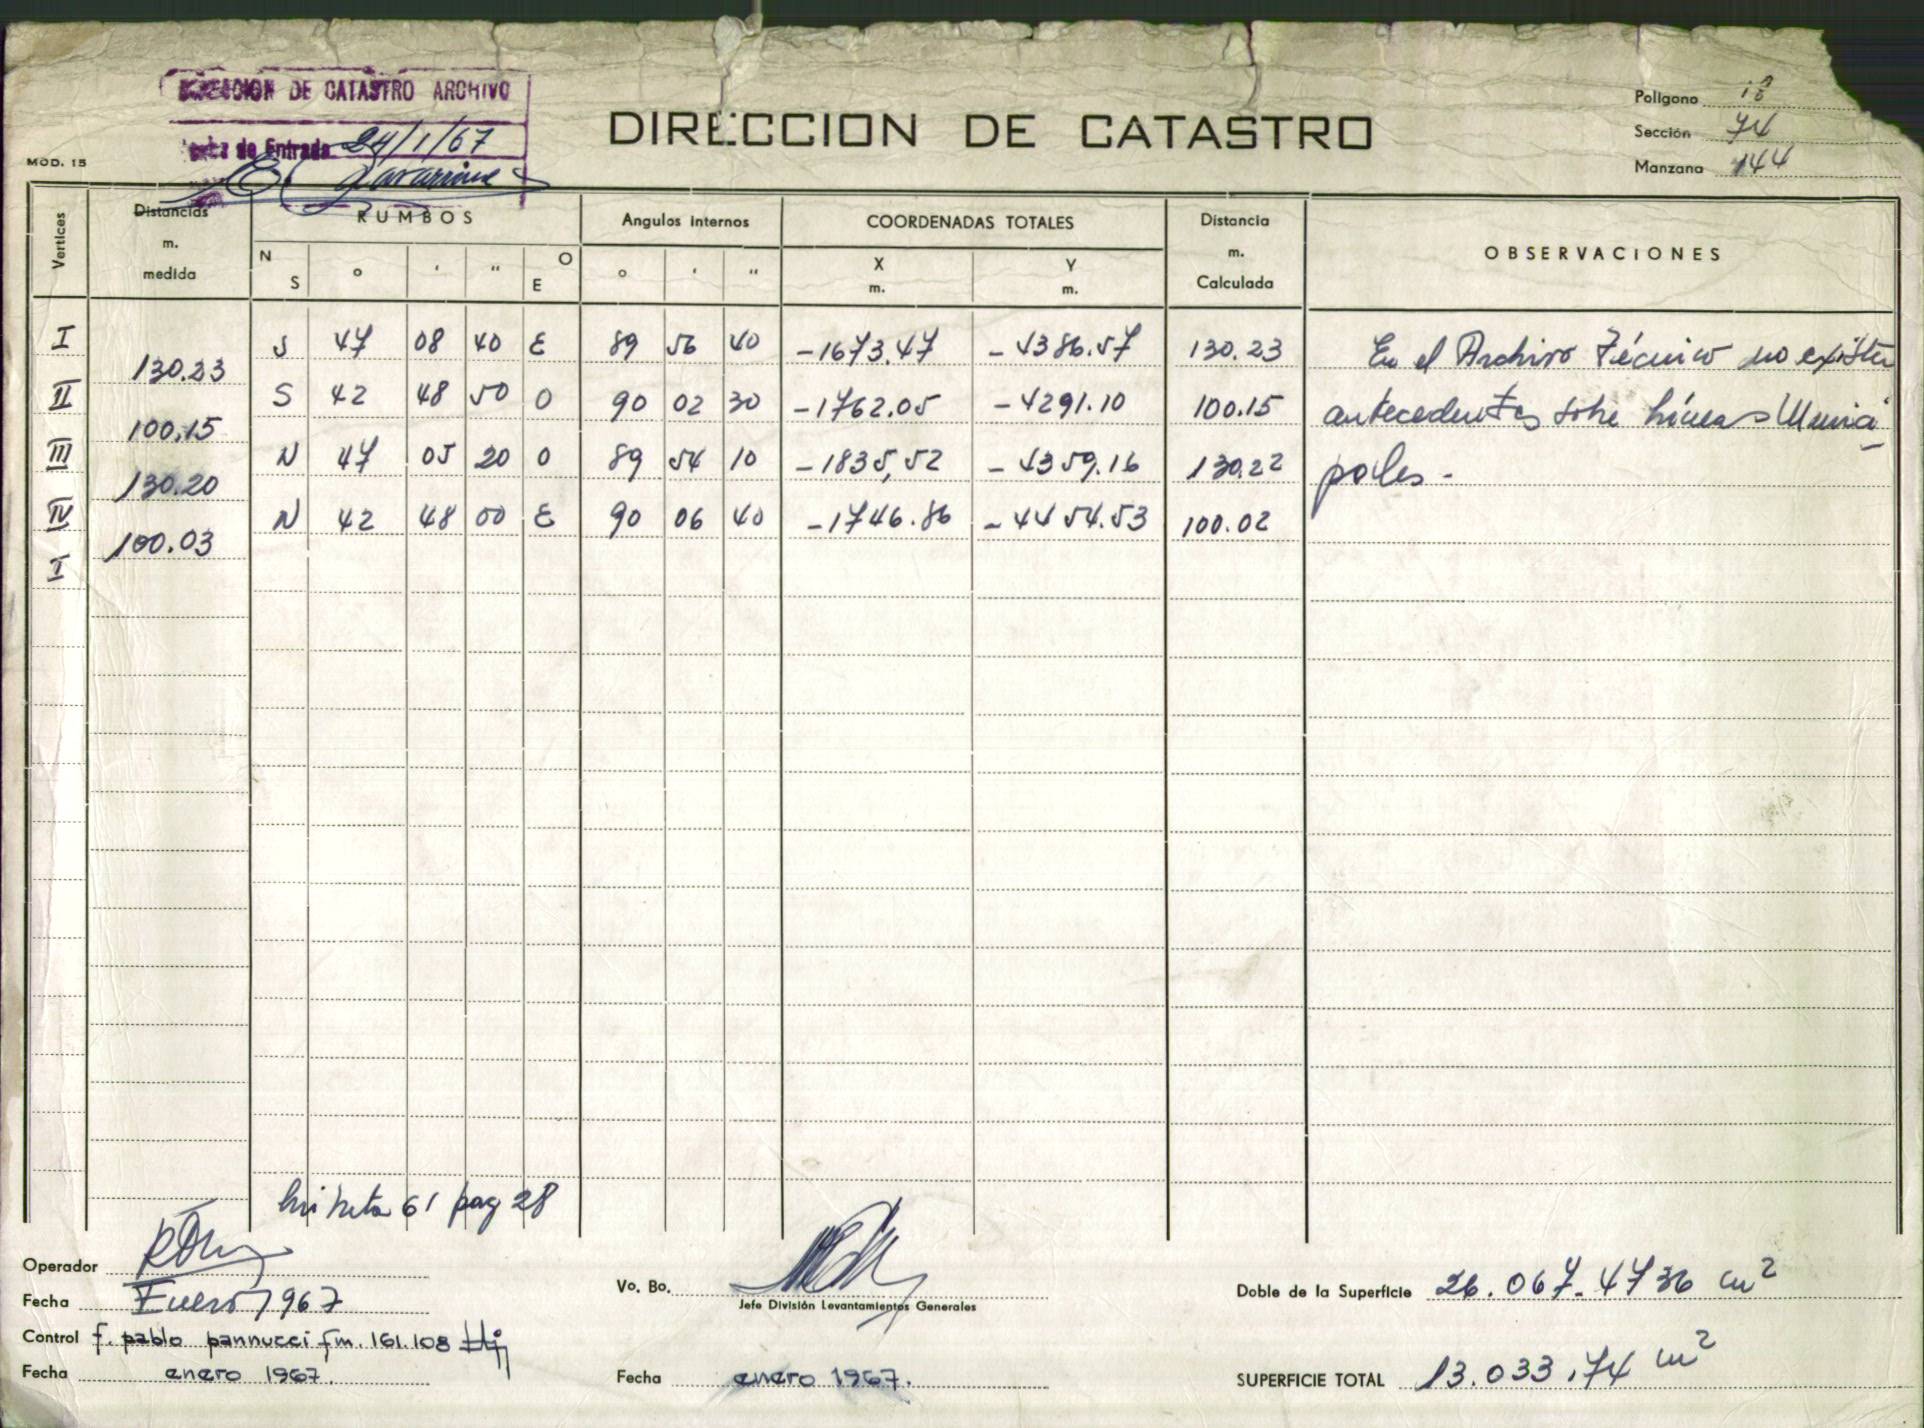 DIRECCION DE CATASTRO ARCHIVO
de Entrada 24/1/67
DIRECCION DE CATASTRO
Polígono 18
Sección 74
Manzana 144
MOD. 15
Vertices Distancias m. medida RUMBOS Angulos internos COORDENADAS TOTALES Distancia m. Calculada OBSERVACIONES
N S ° ' " O E ° ' " X m. Y m.
I S 47 08 40 E 89 56 40 -1673.47 -4386.57 130.23 En el Archivo Técnico no existen
130.23
II S 42 48 50 O 90 02 30 -1762.05 -4291.10 100.15 antecedentes sobre líneas Munici
100.15
III N 47 05 20 O 89 54 10 -1835,52 -4359.16 130.22 pales.-
130.20
IV N 42 48 00 E 90 06 40 -1746.86 -4454.53 100.02
100.03
I
libreta 61 pag 28
Operador
Fecha Enero 1967
Control f. pablo pannucci fm. 161.108
Fecha enero 1967.
Vo. Bo.
Jefe División Levantamientos Generales
Fecha enero 1967.
Doble de la Superficie 26.067.4736 m²
SUPERFICIE TOTAL 13.033,74 m²